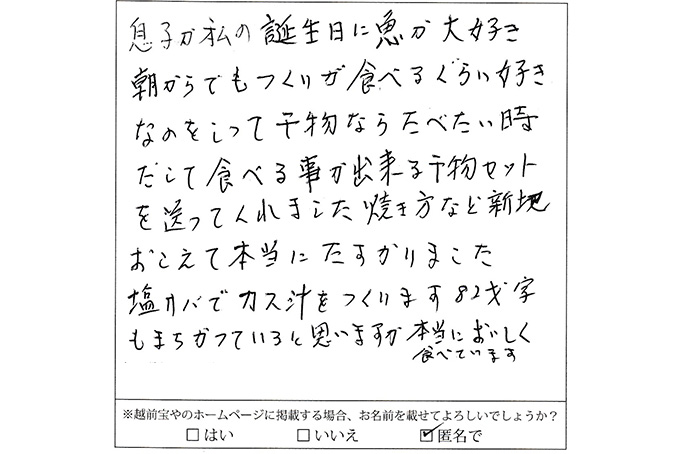 息子が私の誕生日に魚が大好き
朝からでもつくりが食べるぐらい好き
なのをしって干物ならたべたい時
だして食べる事が出来る干物セット
を送ってくれました焼き方など新地
おこえて本当にたすかりました
塩サバでカス汁をつくります82才字
もまちがっていると思いますが本当においしく
食べています
※越前宝やのホームページに掲載する場合、お名前を載せてよろしいでしょうか?
□はい □いいえ ☑匿名で